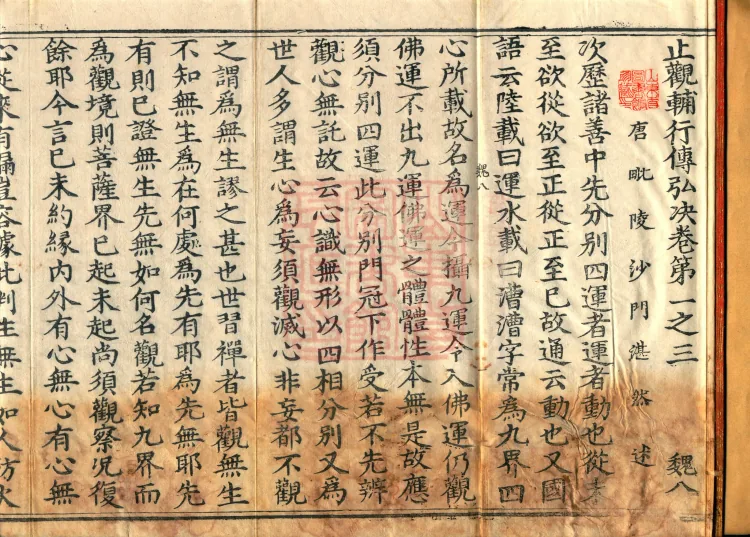 止觀輔行傳弘決卷第一之三 魏八
唐毗陵沙門湛然述
次歷諸善中先分別四運者運者動也從未
至欲從欲至正從正至已故通云動也又國
語云陸載曰運水載曰漕漕字常為九界四
魏八
心所載故名為運今攝九運令入佛運仍觀
佛運不出九運佛運之體體性本無是故應
須分別四運此分別門冠下作受若不先辨
觀心無託故云心識無形以四相分別又為
世人多謂生心為妄須觀滅心非妄都不觀
之謂為無生謬之甚也世習禪者皆觀無生
不知無生為在何處為先有耶為先無耶先
有則已證無生先無如何名觀若知九界而
為觀境則菩薩界已起未起尚須觀察況復
餘耶今言已未約緣內外有心無心有心無
心從來有攝豈容據此判生無生如人防火